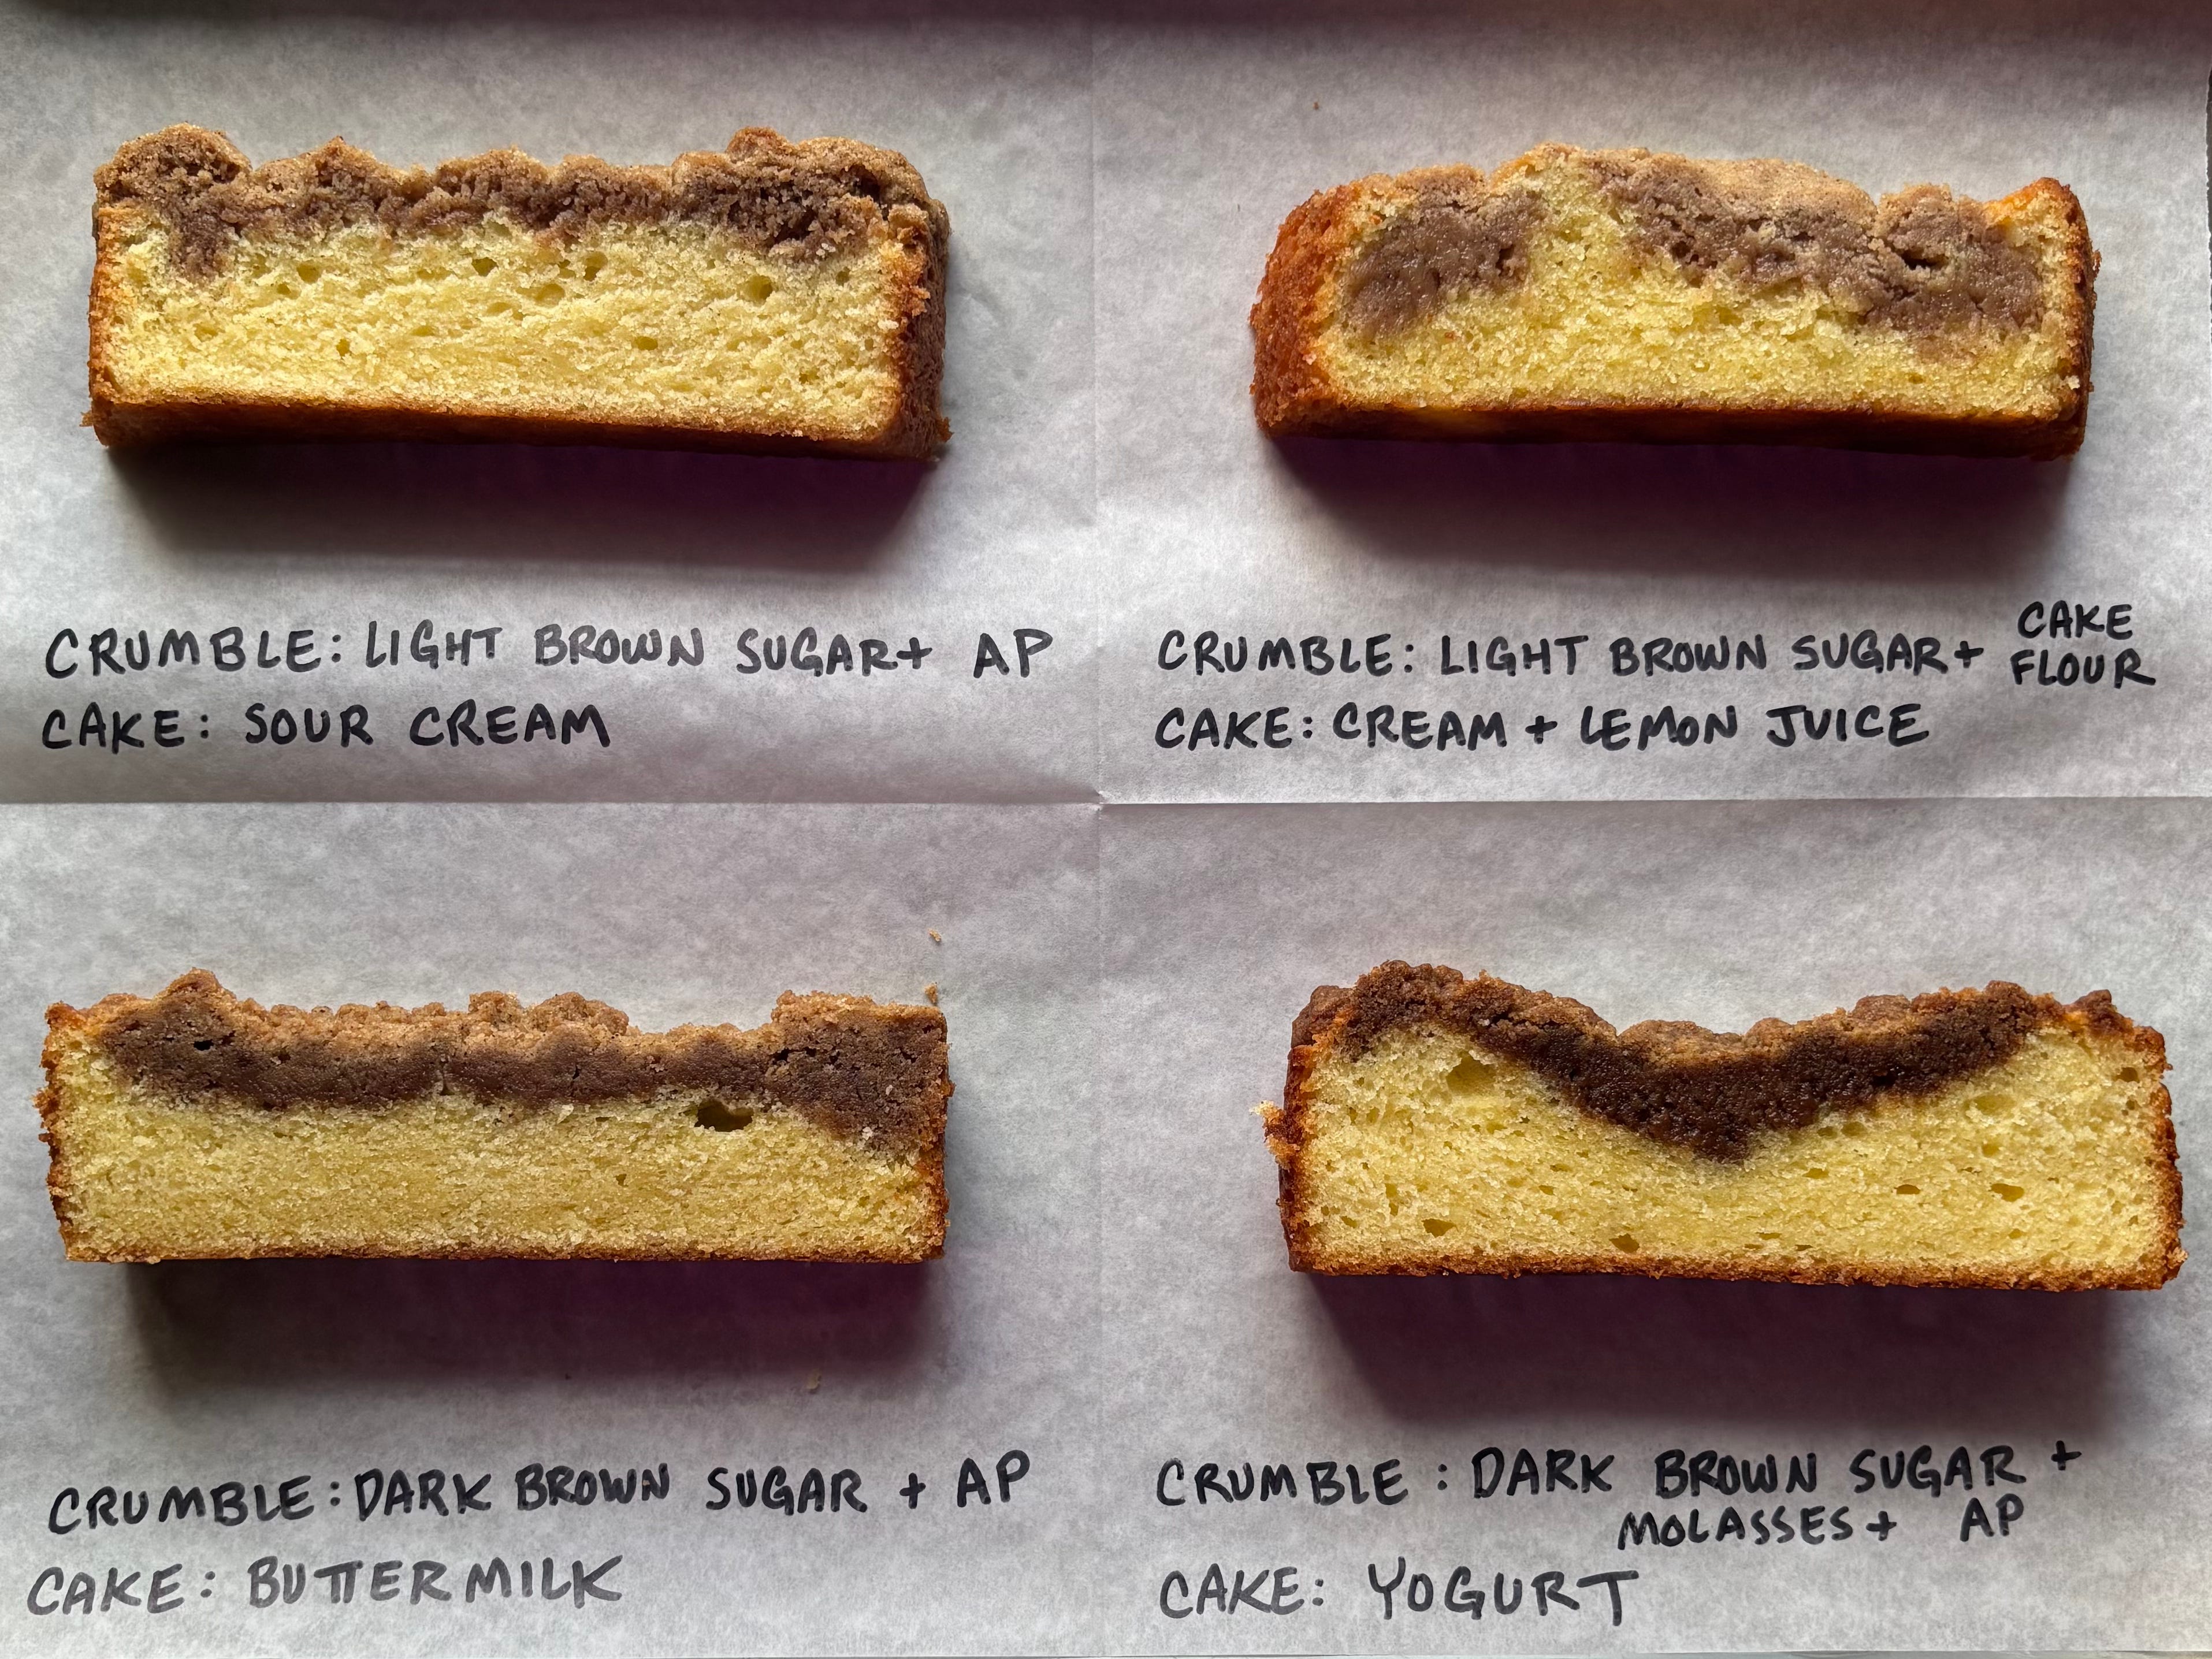 CRUMBLE: LIGHT BROWN SUGAR + AP
CAKE: SOUR CREAM
CRUMBLE: LIGHT BROWN SUGAR + CAKE FLOUR
CAKE: CREAM + LEMON JUICE
CRUMBLE: DARK BROWN SUGAR + AP
CAKE: BUTTERMILK
CRUMBLE: DARK BROWN SUGAR +
MOLASSES + AP
CAKE: YOGURT